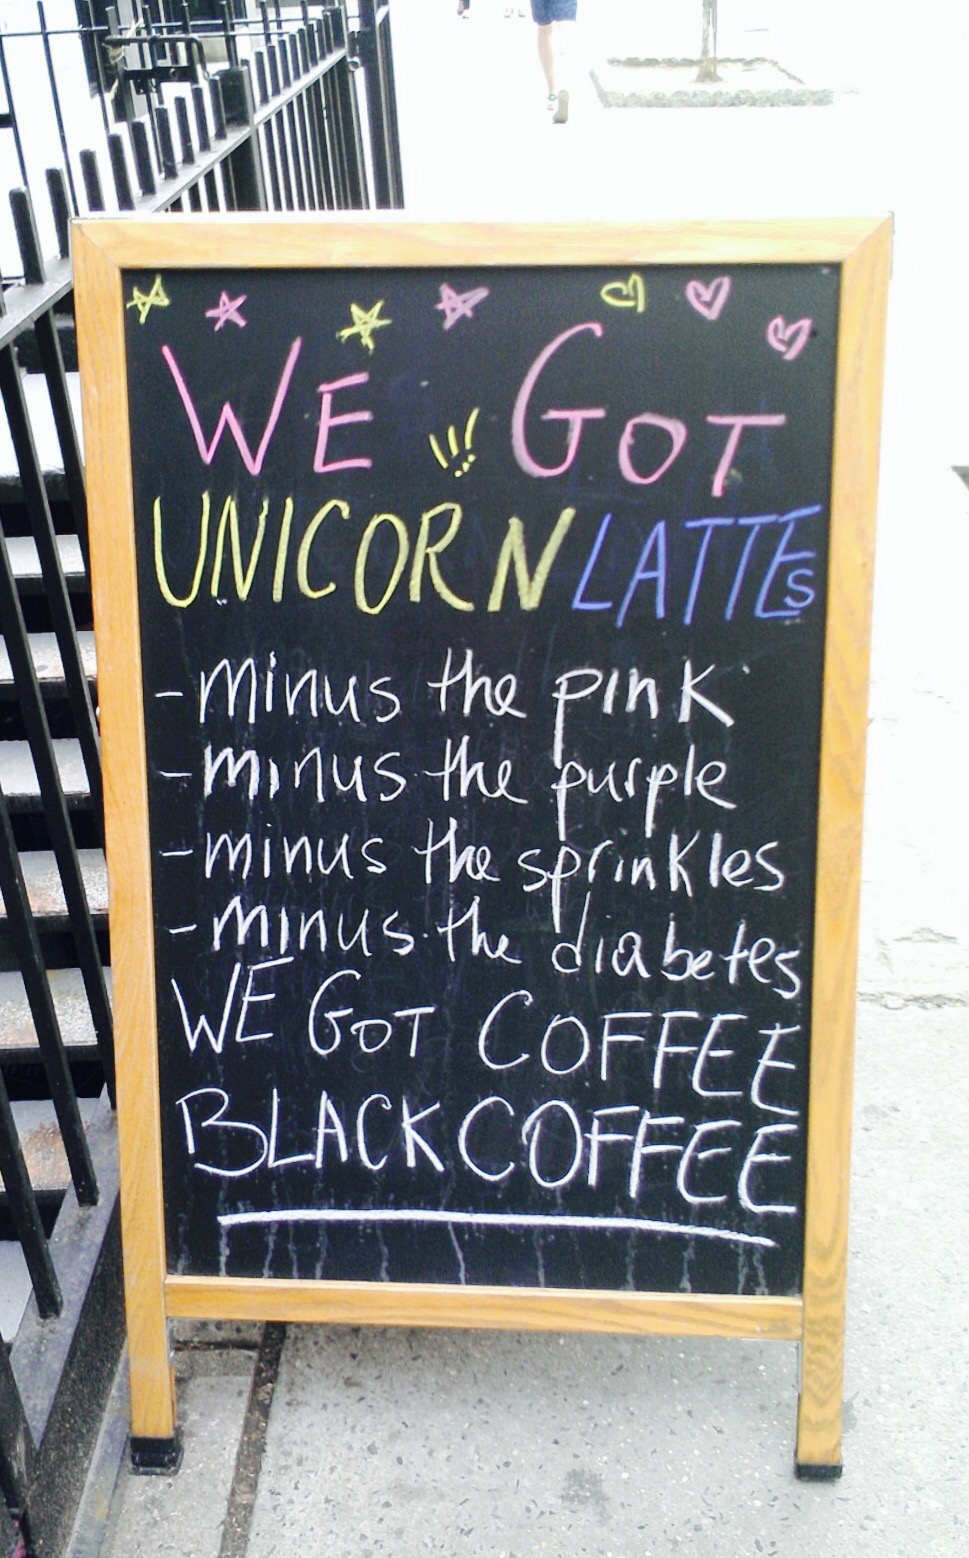 WE !!! GOT
UNICORN LATTES
- minus the pink
- minus the purple
- minus the sprinkles
- minus the diabetes
WE GOT COFFEE
BLACK COFFEE